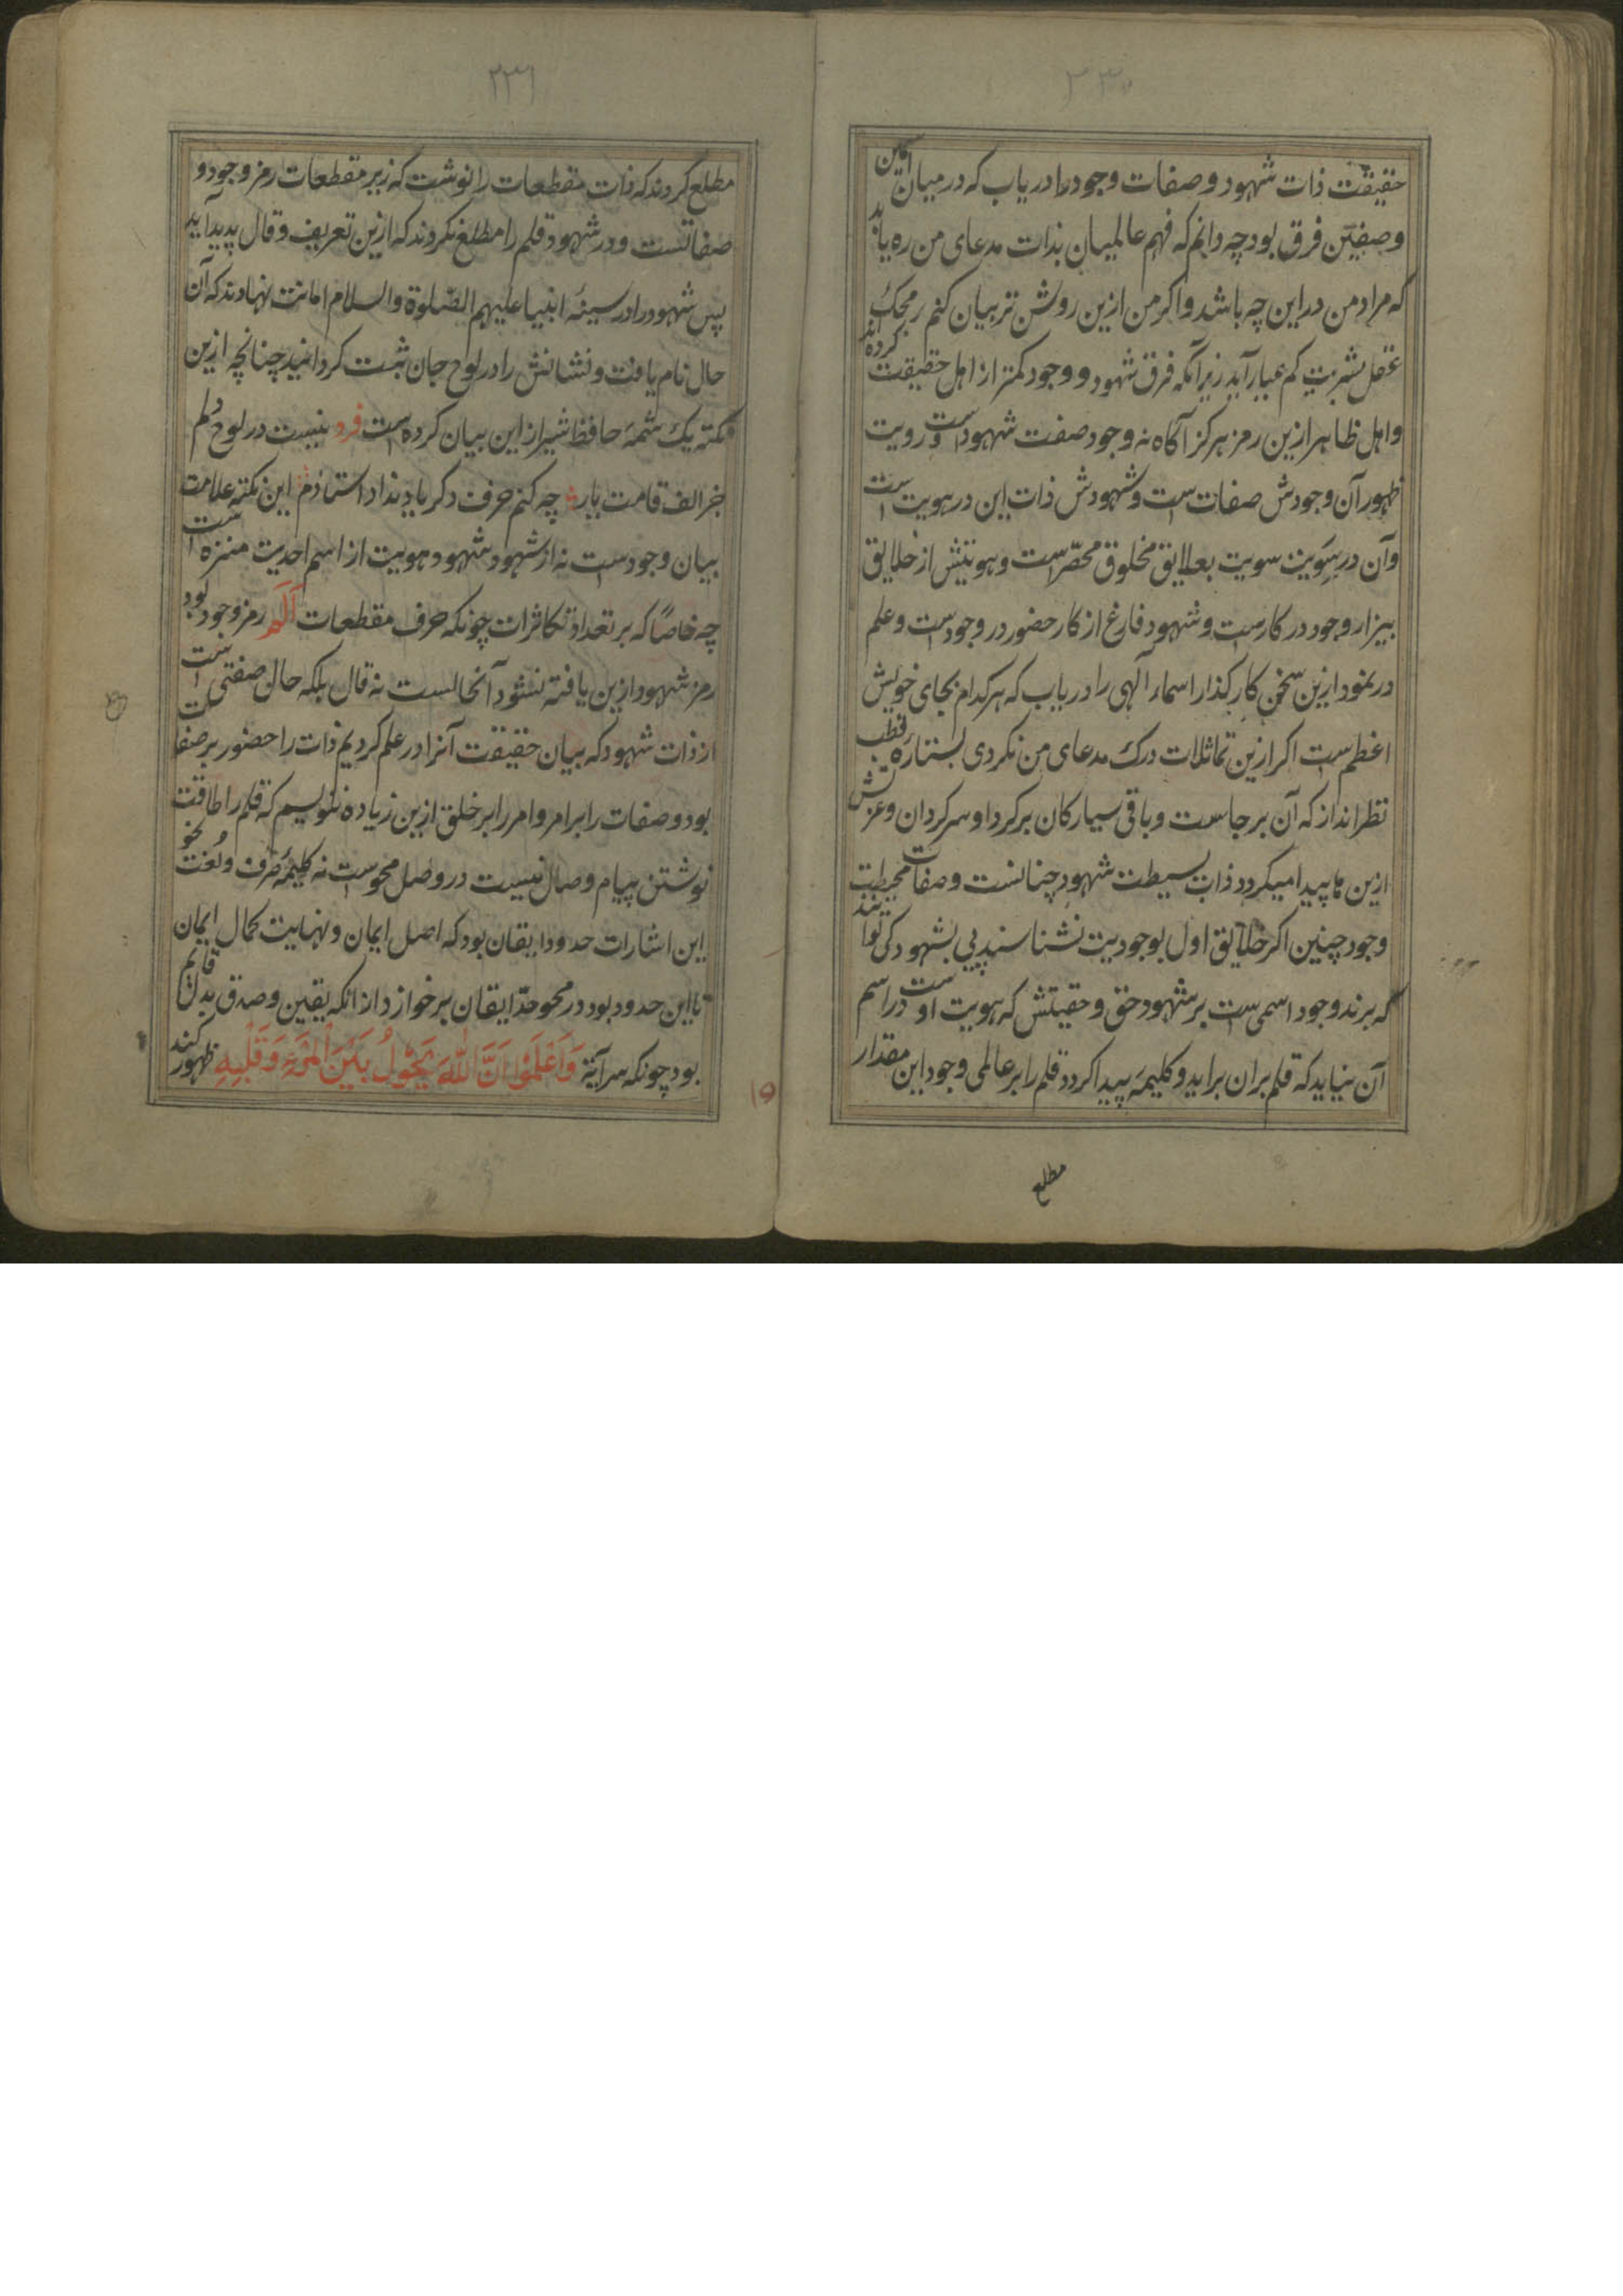 ۲۳۰
حقیقت ذات شهود و صفات وجود را دریاب که در میان این
وصفین فرق بود چه دانم که فهم عالمیان بذات مدعای من ره یابد
که مراد من در این چه باشد و اکر من ازین روشن تر بیان کنم زمحک
عقل بشریت کم عیار آید زیرآنکه فرق شهود و وجود کمتر از اهل حقیقت کرده اند
و اهل ظاهر ازین رمز هرکز آکاه نه وجود صفت شهود است و رویت
ظهور آن وجودش صفات است و شهودش ذات این در هویت است
وآن در سویت سویت بعلایق مخلوق محصّر است و هویتش از خلایق
بیزار وجود در کار است و شهود فارغ از کار حضور در وجود است و علم
در نمود ازین سخن کار کذار اسماء آلهی را دریاب که هر کدام بجای خویش
اعظم ست اکر ازین تماثلات درک مدعای من نکردی بستاره قطب
نظر انداز که آن بر جاست و باقی سیارکان بر کرد او سرکردان و عزتش
ازین ها پیدا میکردد ذات بسیطت شهود چنانست و صفات محیطیت
وجود چنین اکر خلایق اول بوجودیت نشناسند پی بشهود کی توانند
که برند وجود اسمی ست بر شهود حق و حقیتش که هویت اوست در اسم
آن نیاید که قلم بران براید و کلیمهٔ پیدا کردد قلم را بر عالمی وجود این مقدار
مطلع
۲۳۱
مطلع کردند که ذات مقطعات را نوشت که زیر مقطعات رمز وجود و
صفاتست و در شهود قلم را مطلع نکردند که ازین تعریف و قال پدید آید
پس شهود را در سینهٔ انبیا علیهم الصّلوة والسلام امانت نهادند که آن
حال نام یافت و نشانش را در لوح جان ثبت کردانید چنانچه ازین
نکته یک شمهٔ حافظ شیراز این بیان کرده است فرد نیست در لوح دلم
جز الف قامت یار چه کنم حرف دکر یاد نداد استادم این نکته علامت
بیان وجود ست نه از شهود شهود هویت از اسم احدیت منزه است
چه خاصًا که بر تعداد تکاثرات چونکه حرف مقطعات الٓم رمز وجود بود
رمز شهود ازین یافته نشود آنحالست نه قال بلکه حال صفتی است
از ذات شهود که بیان حقیقت آنرا در علم کردیم ذات را حضور بر صفات
بود و صفات را بر امر و امر را بر خلق ازین زیاده ننویسم که قلم را طاقت
نوشتن پیام وصال نیست در وصل محو است نه کلیمهٔ صرف و لغت نحو
این اشارات حدود ایقان بود که اصل ایمان و نهایت کمال ایمان
تا این حدود بود در محو حدّ ایقان برخواز دار انکه یقین و صدق بدل قایم
بود چونکه سرآیة وَاعْلَمُوا اَنَّ اللّٰهَ یَحُوْلُ بَیْنَ الْمَرْءِ وَ قَلْبِهِ ظهور کند